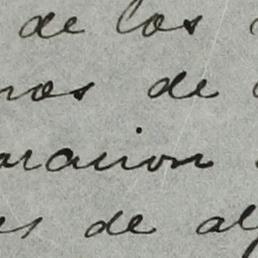 de los
nos de
aracion
es de al